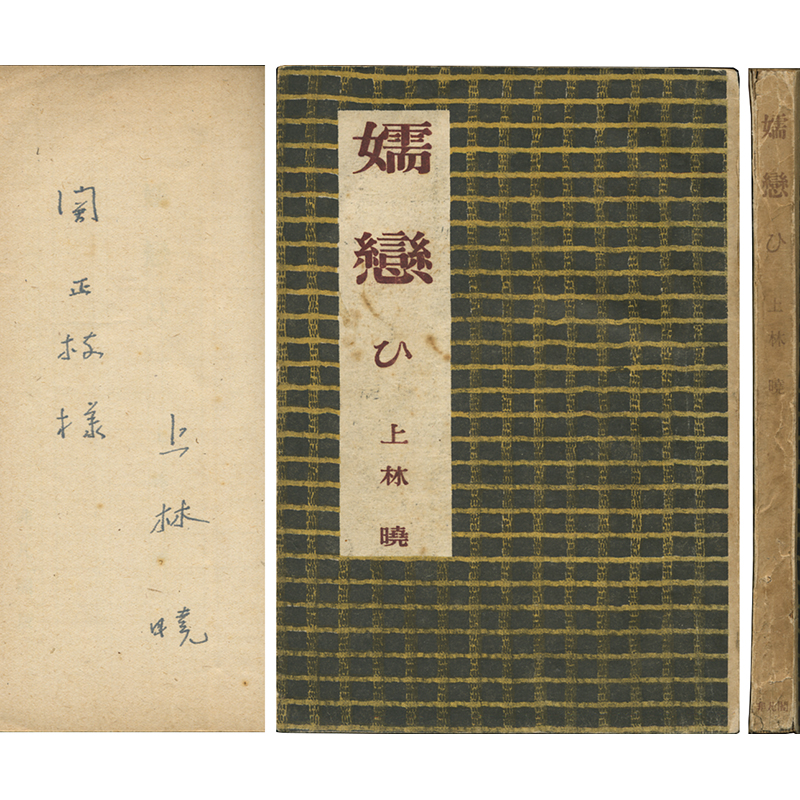 関正枝様
上林曉
嬬戀ひ
上林曉
嬬戀ひ 上林曉